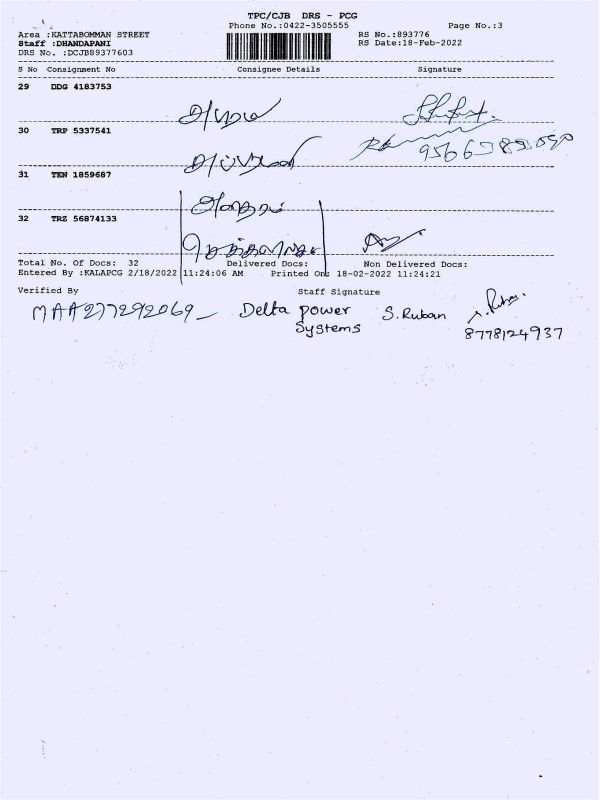 TPC/CJB DRS - PCG
Phone No.:0422-3505555 Page No.:3
Area :KATTABOMMAN STREET RS No.:893776
Staff :DHANDAPANI RS Date:18-Feb-2022
DRS No. :DCJB89377603
S No Consignment No Consignee Details Signature
29 DDG 4183753
30 TRP 5337541
31 TEN 1859687
32 TRZ 56874133
Total No. Of Docs: 32 Delivered Docs: Non Delivered Docs:
Entered By :KALAPCG 2/18/2022 11:24:06 AM Printed On: 18-02-2022 11:24:21
Verified By Staff Signature
MAA277292069 Delta power S.Ruban
Systems 8778124937